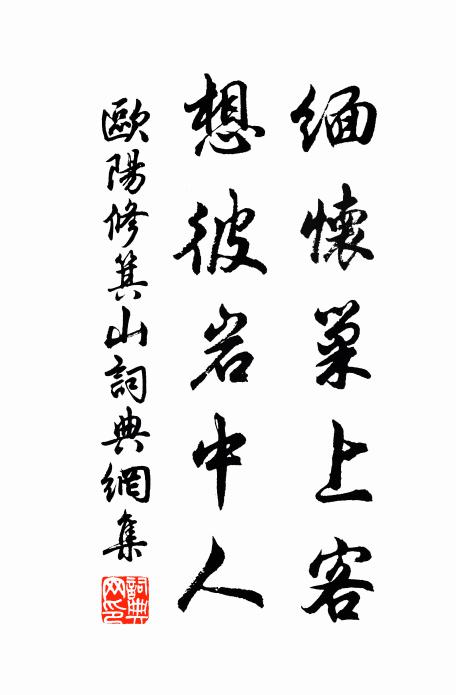 緬懷巢上客
想彼岩中人
歐陽修箕山詞典網集
詞典網印